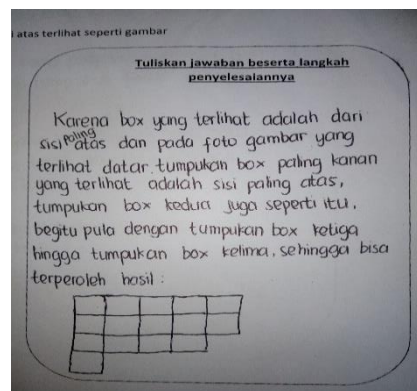 i atas terlihat seperti gambar
Tuliskan jawaban beserta langkah
penyelesaiannya
Karena box yang terlihat adalah dari
sisi paling atas dan pada foto gambar yang
terlihat datar. tumpukan box paling kanan
yang terlihat adalah sisi paling atas,
tumpukan box kedua juga seperti itu,
begitu pula dengan tumpukan box ketiga
hingga tumpukan box kelima, sehingga bisa
terperoleh hasil :